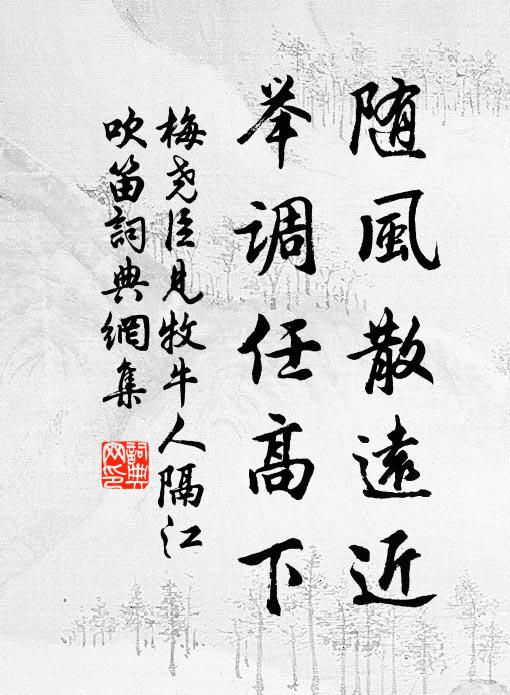 随風散遠近
举调任高下
梅尧臣見牧牛人隔江
吹笛詞典網集
詞典
网印